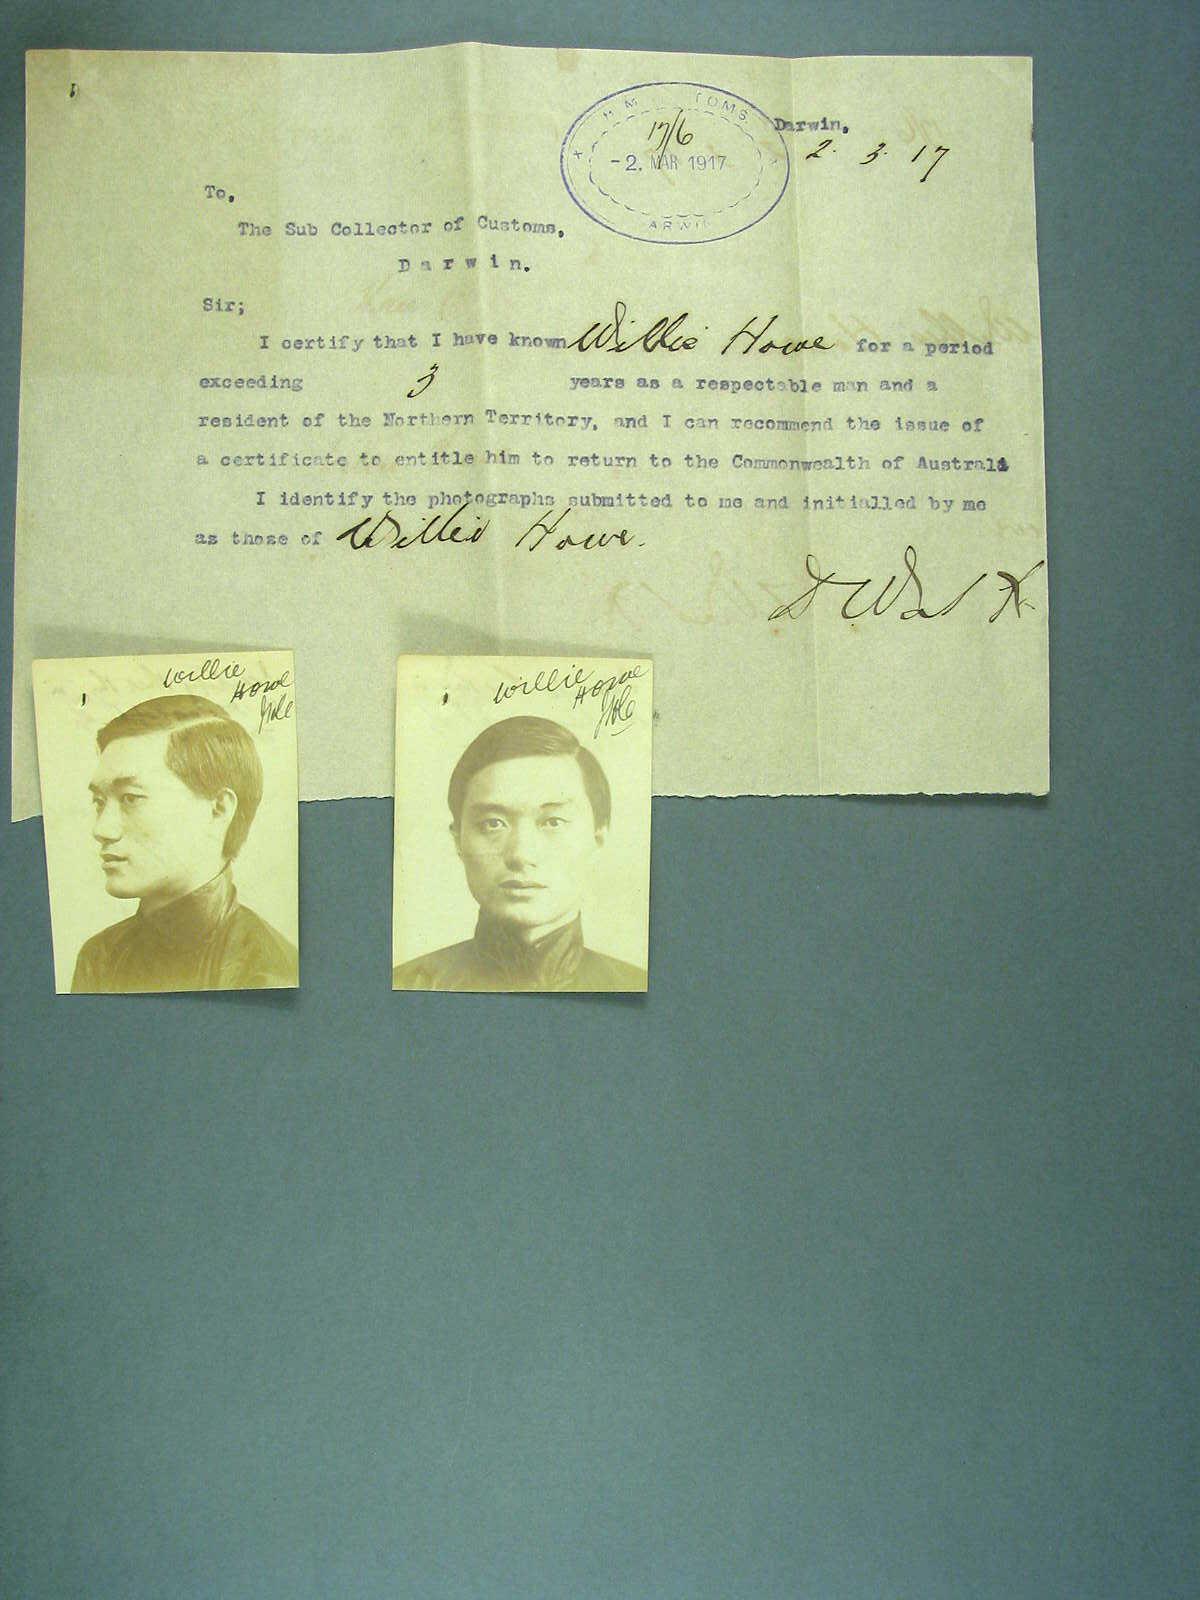 H M TOMS
17/6
-2. MAR 1917
ARWI
Darwin,
2. 3. 17
To,
The Sub Collector of Customs,
Darwin.
Sir;
I certify that I have known Willie Howe for a period
exceeding 3 years as a respectable man and a
resident of the Northern Territory, and I can recommend the issue of
a certificate to entitle him to return to the Commonwealth of Australi
I identify the photographs submitted to me and initialled by me
as those of Willie Howe.
Willie
Howe
Willie
Howe